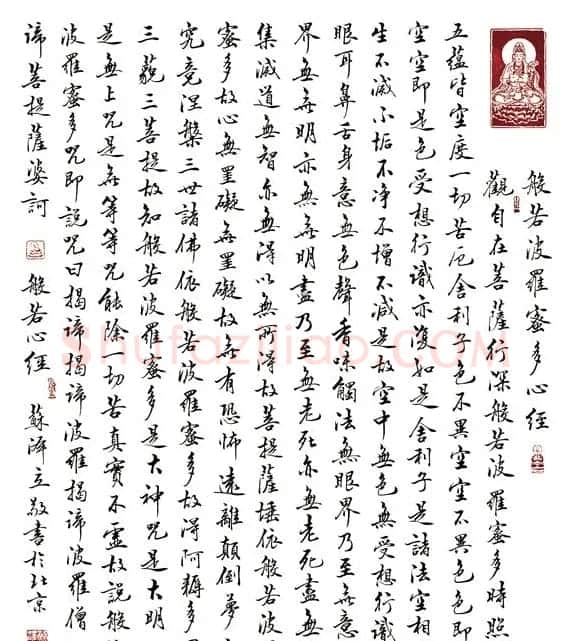 般若波羅蜜多心經
觀自在菩薩行深般若波羅蜜多時照
五蘊皆空度一切苦厄舍利子色不異空空不異色色即
空空即是色受想行識亦復如是舍利子是諸法空相
生不滅不垢不淨不增不減是故空中無色無受想行識
眼耳鼻舌身意無色聲香味觸法無眼界乃至無意
界無無明亦無無明盡乃至無老死亦無老死盡無
集滅道無智亦無得以無所得故菩提薩埵依般若波
蜜多故心無罣礙無罣礙故無有恐怖遠離顛倒夢
究竟涅槃三世諸佛依般若波羅蜜多故得阿耨多
三藐三菩提故知般若波羅蜜多是大神咒是大明
是無上咒是無等等咒能除一切苦真實不虛故說般
波羅蜜多咒即說咒曰揭諦揭諦波羅揭諦波羅僧
諦菩提薩婆訶 般若心經 蘇澤立敬書於北京
Shufaziliao.COM